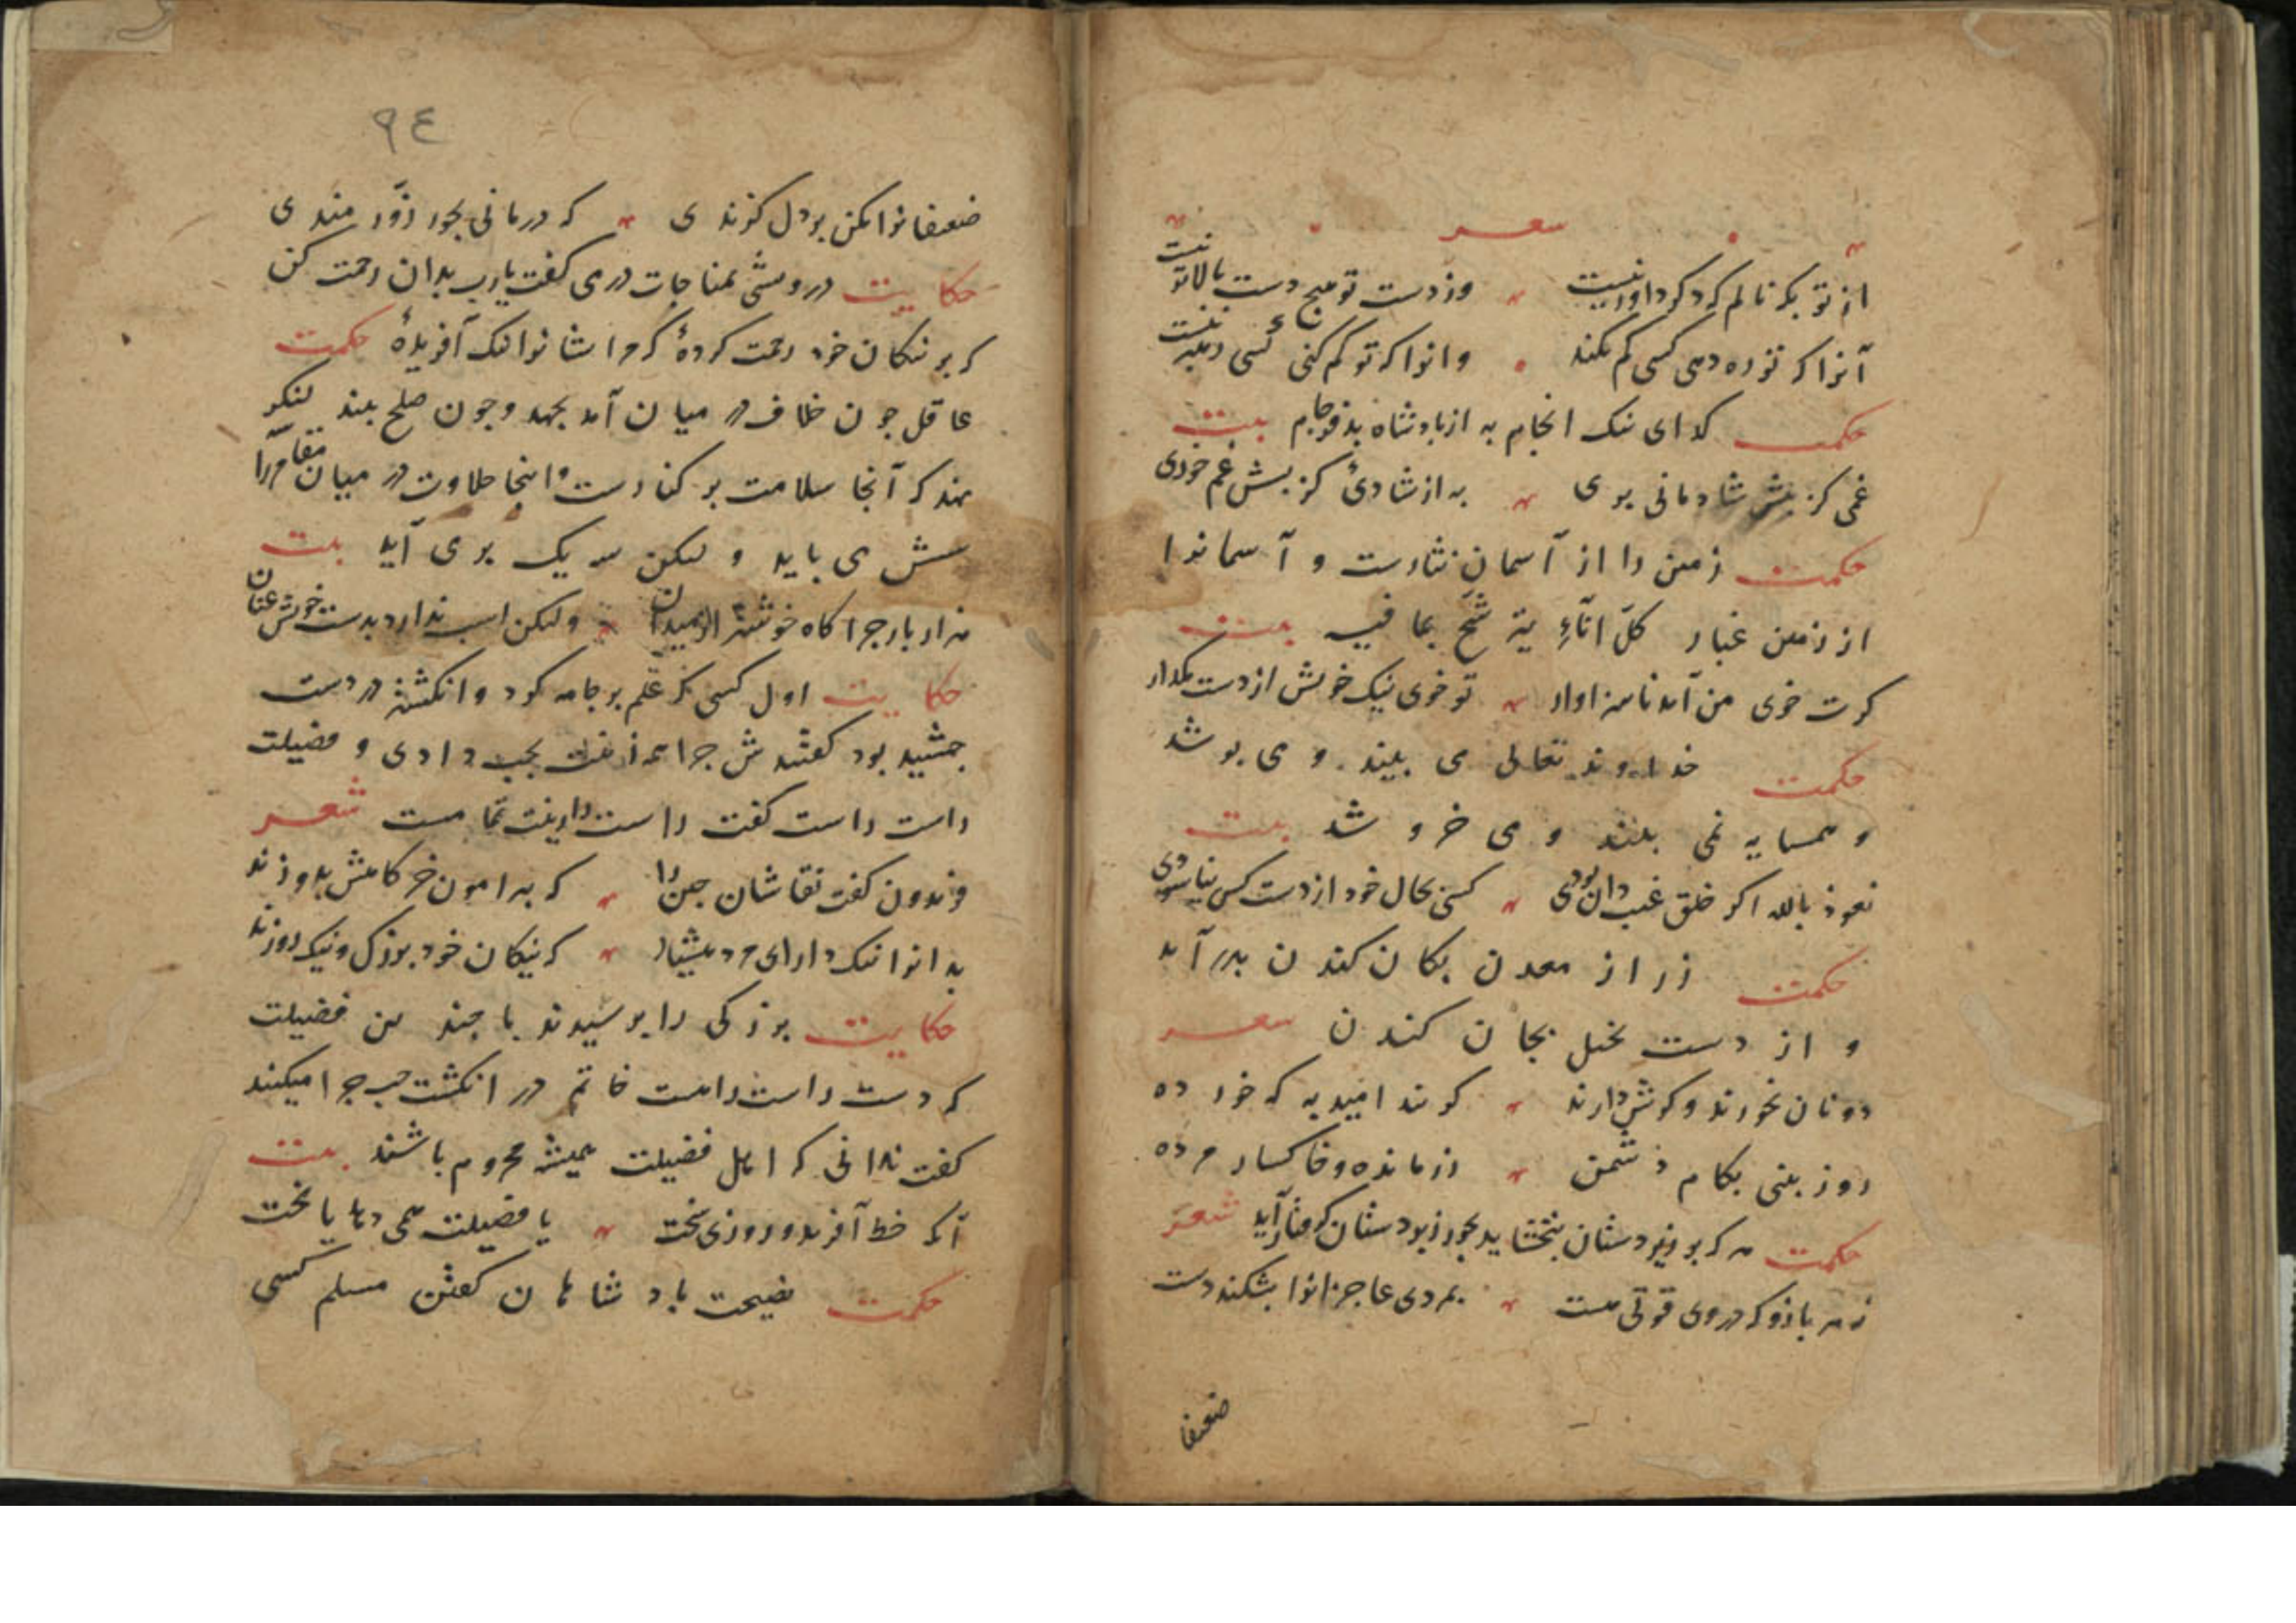 شعر
از تو بکه نالم که دکر داور نیست وز دست تو هیچ دست بالاتر نیست
آنرا که تو ره دهی کسی کم نکند وانرا که تو کم کنی کسی رهبر نیست
حکمت کدای نیک انجام به از بادشاه بدفرجام بیت
غمی کز پیش شادمانی بری به از شادیٔ کز پسش غم خوری
حکمت زمین را از آسمان نثارست و آسمانرا
از زمین غبار کلّ اناءٍ یترشّح بما فیه بیت
کرت خوی من آمد ناسزاوار تو خوی نیک خویش از دست مکذار
حکمت خداوند تعالی می بیند و می بوشد
و همسایه نمی بیند و می خروشد بیت
نعوذ بالله اکر خلق غیب دان بودی کسی بحال خود از دست کس نیاسودی
حکمت زر از معدن بکان کندن بدر آید
و از دست بخیل بجان کندن شعر
دونان نخورند و کوش دارند کویند امید به که خورده
روز بینی بکام دشمن زر مانده و خاکسار مرده
حکمت هر که بر زیردستان نبخشاید بجور زبردستان کرفتار آید شعر
نه هر بازو که در وی قوتی هست بمردی عاجزانرا بشکند دست
ضعیفا
٩٤
ضعیفانرا مکن بر دل کزندی که درمانی بجور زورمندی
حکایت درویشی بمناجات در می کفت یا رب بر بدان رحمت کن
که بر نیکان خود رحمت کردهٔ که مر ایشانرا نیک آفریدهٔ حکمت
عاقل چون خلاف در میان آمد بجهد و چون صلح بیند لنکر
بنهد که آنجا سلامت بر کنارست و اینجا حلاوت در میان مقامر را
سه شش می باید و لیکن سه یک بر می آید بیت
هزار بار چراکاه خوشتر از میدان ولیکن اسب ندارد بدست خویش عنان
حکایت اول کسی که علم بر جامه کرد و انکشتری در دست
جمشید بود کفتندش چرا همه زینت بچپ دادی و فضیلت
راست راست کفت راست را زینت تمامست شعر
فریدون کفت نقاشان چین را که بیرامون خرکاهش بدوزند
بدانرا نیک دار ای مرد هشیار که نیکان خود بزرک و نیک روزند
حکایت بزرکی را برسیدند با چندین فضیلت
که دست راست راست خاتم در انکشت چپ چرا میکنند
کفت ندانی که اهل فضیلت همیشه محروم باشند بیت
آنکه حظ آفرید و روزی سخت یا فضیلت همی دهد یا بخت
حکمت نصیحت بادشاهان کفتن مسلم کسی